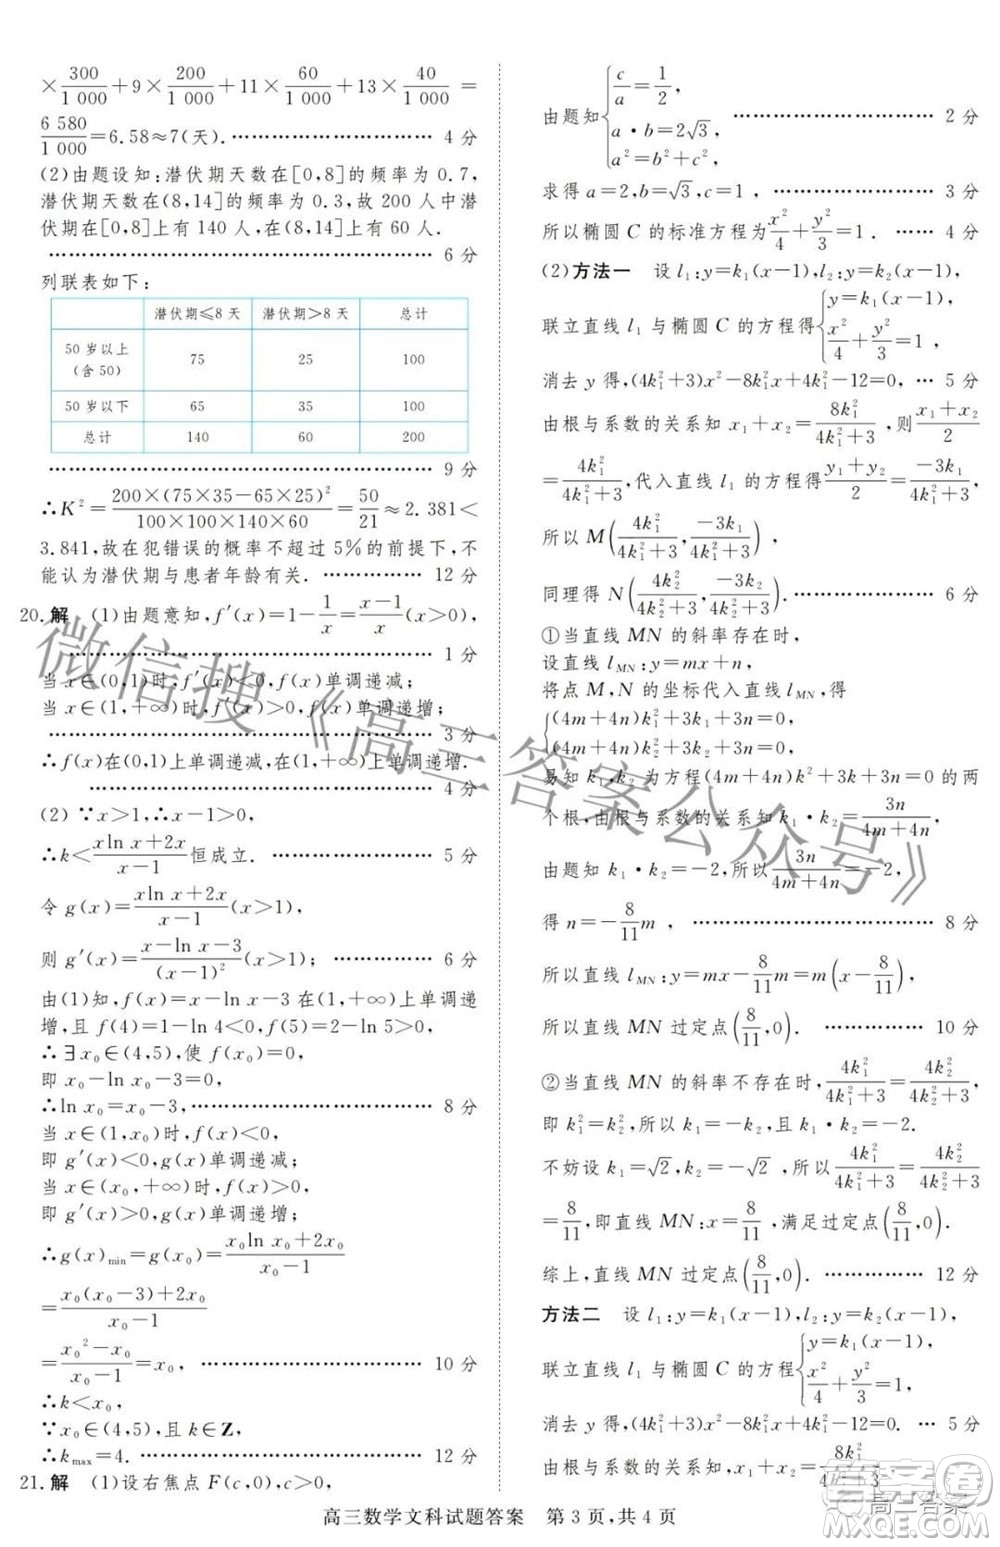 ×300/1 000+9×200/1 000+11×60/1 000+13×40/1 000=
6 580/1 000=6.58≈7(天).……………………… 4 分
(2)由题设知:潜伏期天数在[0,8]的频率为 0.7,
潜伏期天数在(8,14]的频率为 0.3,故 200 人中潜
伏期在[0,8]上有 140 人,在(8,14]上有 60 人.
……………………………………………… 6 分
列联表如下:
潜伏期≤8 天 潜伏期>8 天 总计
50 岁以上(含 50) 75 25 100
50 岁以下 65 35 100
总计 140 60 200
……………………………………………… 9 分
∴K²=200×(75×35-65×25)²/(100×100×140×60)=50/21≈2.381<
3.841,故在犯错误的概率不超过 5%的前提下,不
能认为潜伏期与患者年龄有关.…………… 12 分
20.解 (1)由题意知,f′(x)=1-1/x=(x-1)/x(x>0),
……………………………………………… 1 分
当 x∈(0,1)时,f′(x)<0,f(x)单调递减;
当 x∈(1,+∞)时,f′(x)>0,f(x)单调递增;
……………………………………………… 3 分
∴f(x)在(0,1)上单调递减,在(1,+∞)上单调递增.
……………………………………………… 4 分
(2) ∵x>1,∴x-1>0,
∴k<(xln x+2x)/(x-1)恒成立.…………………… 5 分
令 g(x)=(xln x+2x)/(x-1)(x>1),
则 g′(x)=(x-ln x-3)/(x-1)²;……………… 6 分
由(1)知,f(x)=x-ln x-3 在(1,+∞)上单调递
增,且 f(4)=1-ln 4<0,f(5)=2-ln 5>0,
∴∃x₀∈(4,5),使 f(x₀)=0,
即 x₀-ln x₀-3=0,
∴ln x₀=x₀-3,……………………………… 8 分
当 x∈(1,x₀)时,f(x)<0,
即 g′(x)<0,g(x)单调递减;
当 x∈(x₀,+∞)时,f(x)>0,
即 g′(x)>0,g(x)单调递增;
∴g(x)min=g(x₀)=(x₀ln x₀+2x₀)/(x₀-1)
=(x₀(x₀-3)+2x₀)/(x₀-1)
=(x₀²-x₀)/(x₀-1)=x₀,……………………… 10 分
∴k<x₀,
∵x₀∈(4,5),且 k∈Z,
∴kmax=4.…………………………………… 12 分
21.解 (1)设右焦点 F(c,0),c>0,
由题知{c/a=1/2, a·b=2√3, a²=b²+c², ……………………… 2 分
求得 a=2,b=√3,c=1, ………………… 3 分
所以椭圆 C 的标准方程为x²/4+y²/3=1. …… 4 分
(2)方法一 设 l₁:y=k₁(x-1),l₂:y=k₂(x-1),
联立直线 l₁ 与椭圆 C 的方程得{y=k₁(x-1), x²/4+y²/3=1,
消去 y 得,(4k₁²+3)x²-8k₁²x+4k₁²-12=0, … 5 分
由根与系数的关系知 x₁+x₂=8k₁²/(4k₁²+3),则(x₁+x₂)/2
=4k₁²/(4k₁²+3),代入直线 l₁ 的方程得(y₁+y₂)/2=-3k₁/(4k₁²+3),
所以 M(4k₁²/(4k₁²+3),-3k₁/(4k₁²+3)),
同理得 N(4k₂²/(4k₂²+3),-3k₂/(4k₂²+3)).……………… 6 分
①当直线 MN 的斜率存在时,
设直线 lMN:y=mx+n,
将点 M,N 的坐标代入直线 lMN,得
{(4m+4n)k₁²+3k₁+3n=0, (4m+4n)k₂²+3k₂+3n=0,
易知 k₁,k₂ 为方程(4m+4n)x²+3x+3n=0 的两
个根,由根与系数的关系知 k₁·k₂=3n/(4m+4n),
由题知 k₁·k₂=-2,所以3n/(4m+4n)=-2,
得 n=-8/11m, ………………………… 8 分
所以直线 lMN:y=mx-8/11m=m(x-8/11),
所以直线 MN 过定点(8/11,0). …………… 10 分
②当直线 MN 的斜率不存在时,4k₁²/(4k₁²+3)=4k₂²/(4k₂²+3),
即 k₁²=k₂²,k₁=-k₂,且 k₁·k₂=-2.
不妨设 k₁=√2,k₂=-√2,所以4k₁²/(4k₁²+3)=4k₂²/(4k₂²+3)
=8/11,即直线 MN:x=8/11,满足过定点(8/11,0).
综上,直线 MN 过定点(8/11,0).…………… 12 分
方法二 设 l₁:y=k₁(x-1),l₂:y=k₂(x-1),
联立直线 l₁ 与椭圆 C 的方程{y=k₁(x-1), x²/4+y²/3=1,
消去 y 得,(4k₁²+3)x²-8k₁²x+4k₁²-12=0. … 5 分
由根与系数的关系知 x₁+x₂=8k₁²/(4k₁²+3)
高三数学文科试题答案 第 3 页,共 4 页
微信搜《高三答案公众号》
答案圈
高三答案